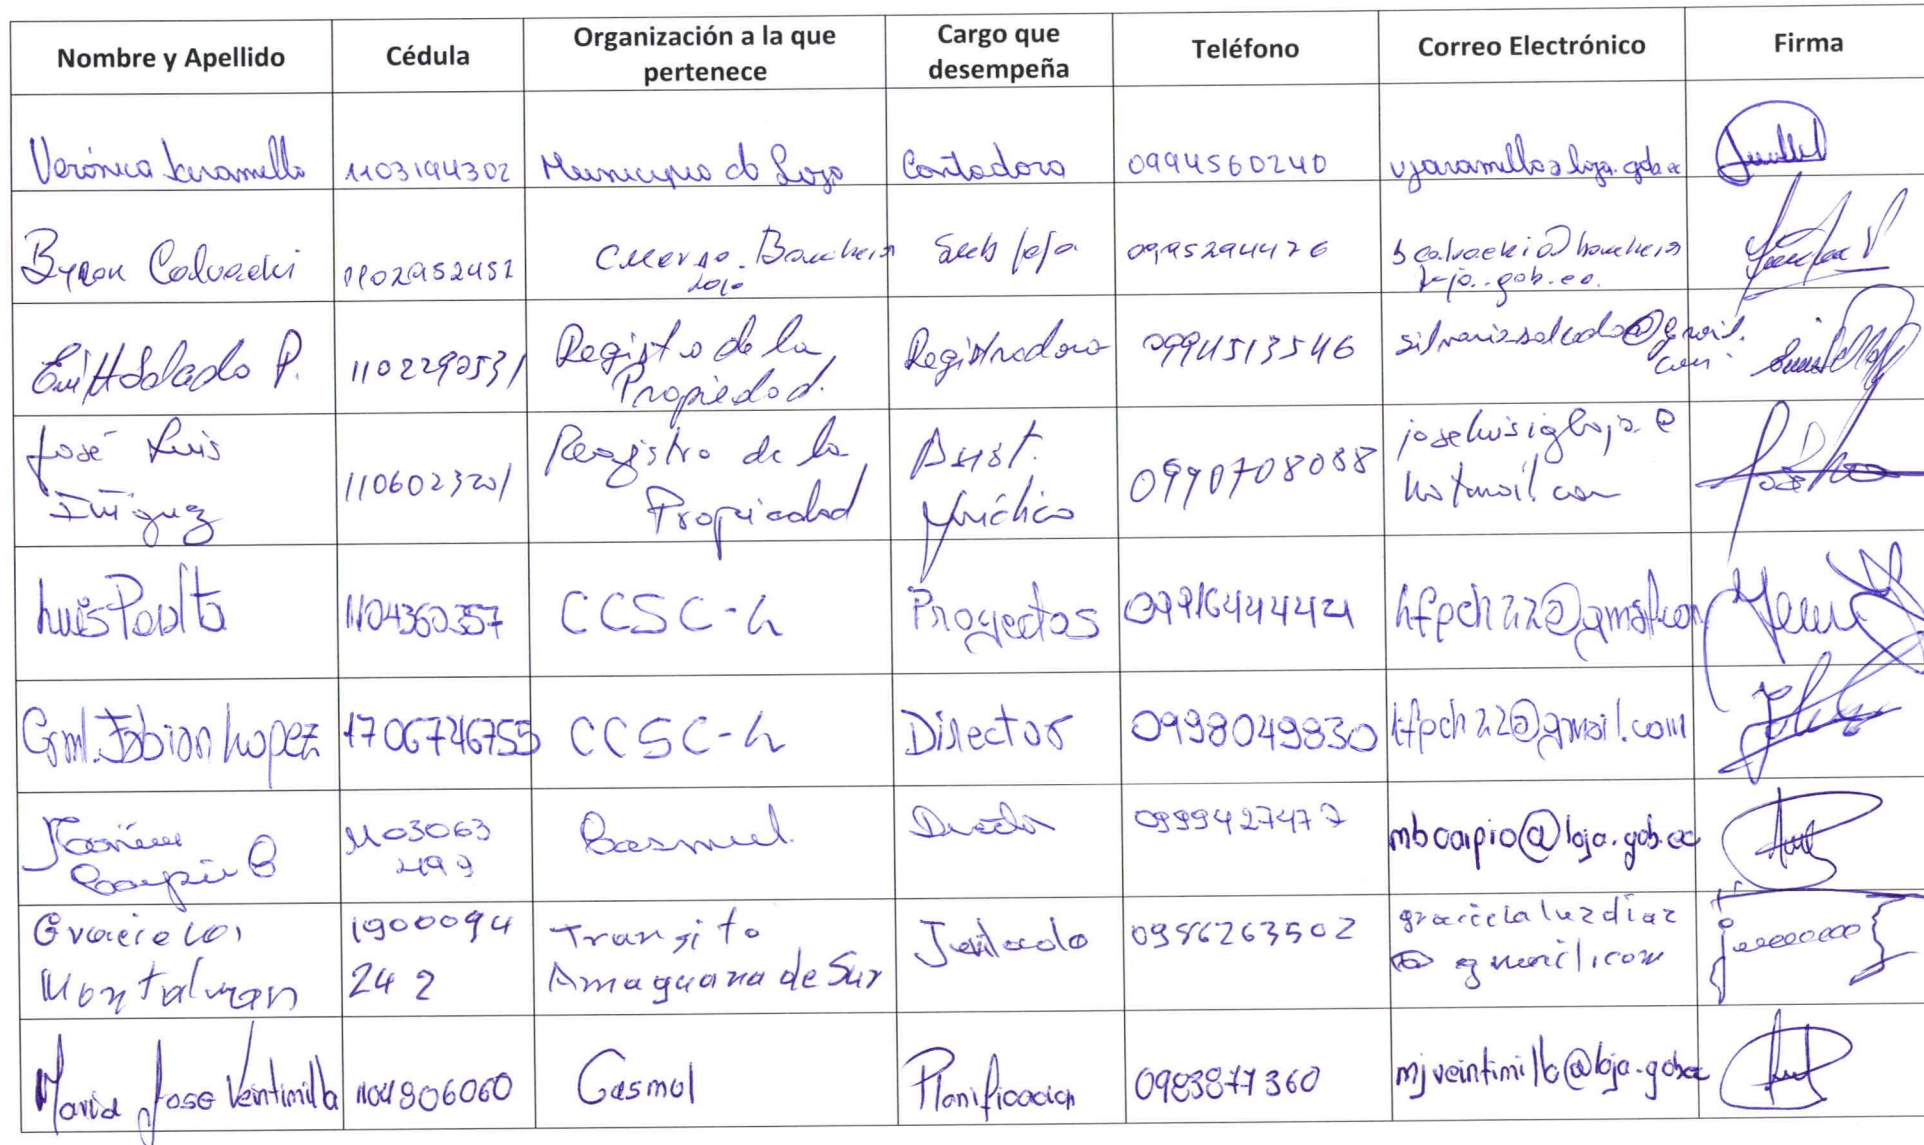 Nombre y Apellido Cédula Organización a la que pertenece Cargo que desempeña Teléfono Correo Electrónico Firma
Verónica Jaramillo 1103194302 Municipio de Loja Contadora 0994560240 vjaramillo@loja.gob.ec
Byron Calvachi 1102952452 Cuerpo Bomberos Loja Sub jefe 0995294476 bcalvachi@bomberos
loja.gob.ec.
Salcado P. 1102290531 Registro de la Propiedad. Registradora 0994513546 silvanizsalcado@gmail.
com
José Luis Iñiguez 1106023201 Registro de la Propiedad Asist. Jurídico 0990708088 joseluisigloja@
hotmail com
Luis Paolta 1104360357 CCSC-L Proyectos 0991644442 lfpch22@gmail.com
Grml. Fabian Lopez 1706746755 CCSC-L Director 0998049830 lfpch22@gmail.com
Carpio B 1103063
499 Casmul Director 0999427477 mbcarpio@loja.gob.ec
Graciela
Montalvan 1900094
242 Transito
Amaguana de Sur 0986263502 gracielaluzdiaz
@gmail.com
Maria Jose Veintimilla 1104806060 Casmul Planificacion 0983877360 mjveintimilla@loja.gob.ec